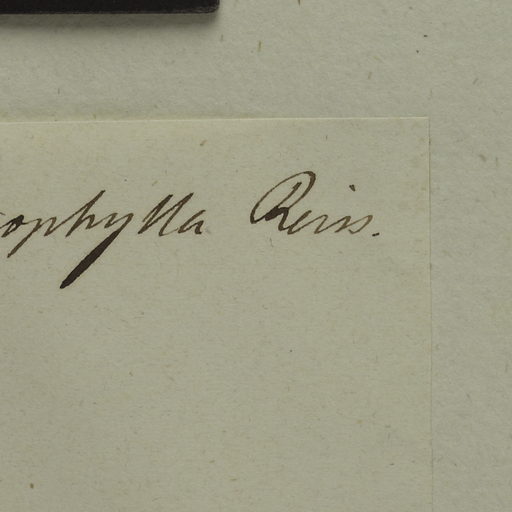 ophylla Reiss.